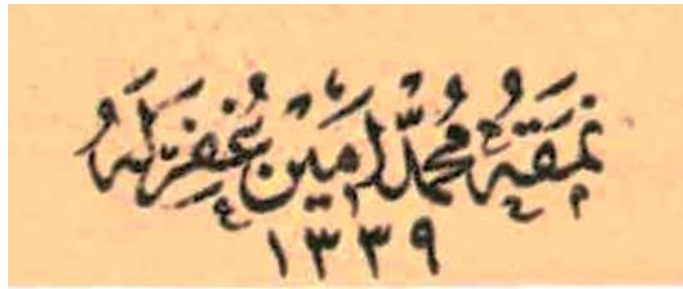 نَمَقَهُ مُحَمَّد أَمِين غُفِرَ لَهُ
١٣٣٩